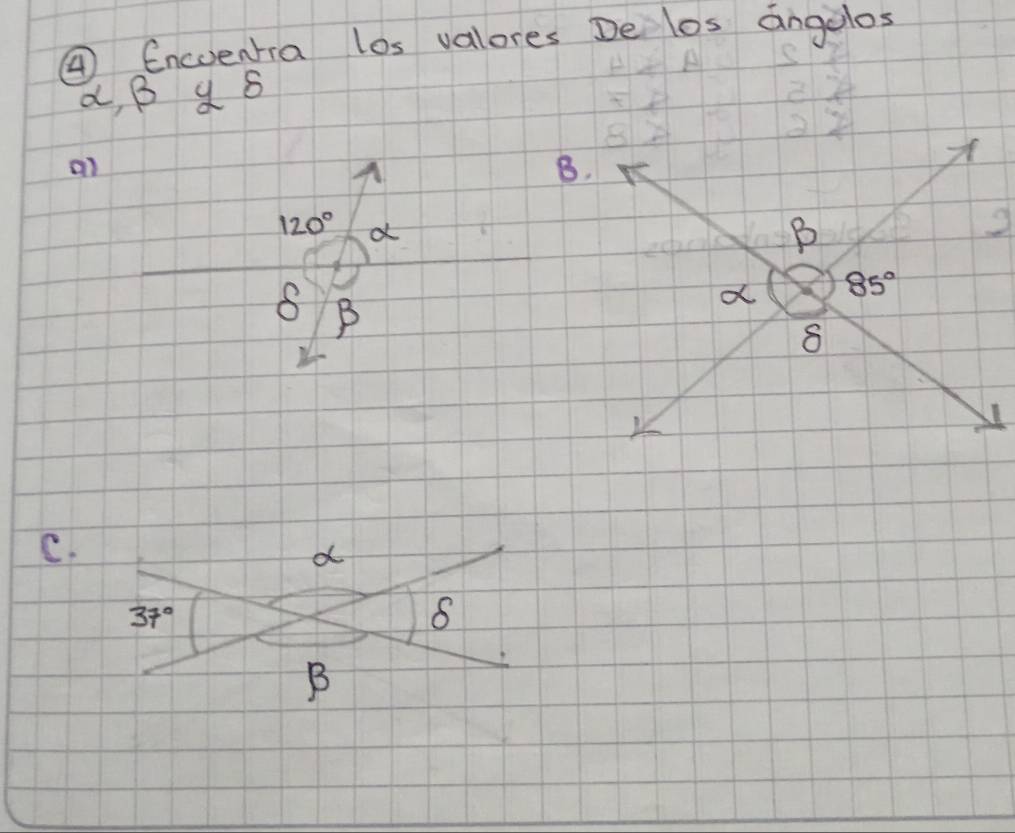 ④ Encuentra los valores De los ángulos
α, β y δ
a)
120° α
δ β
B.
β
α 85°
δ
C.
α
37° δ
β